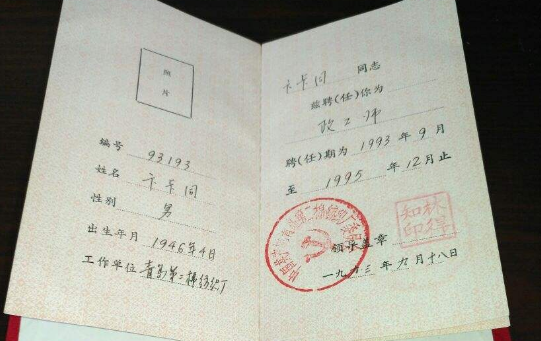 照
片
编号 93193
姓名 卞年同
性别 男
出生年月 1946年4日
工作单位 青岛第二棉纺织厂
同志
兹聘(任)你为
政工师
聘(任)期为 1993 年 9 月
至 1995 年 12 月止
领导盖章
一九九三 年 九 月 十八 日
林祥
知印